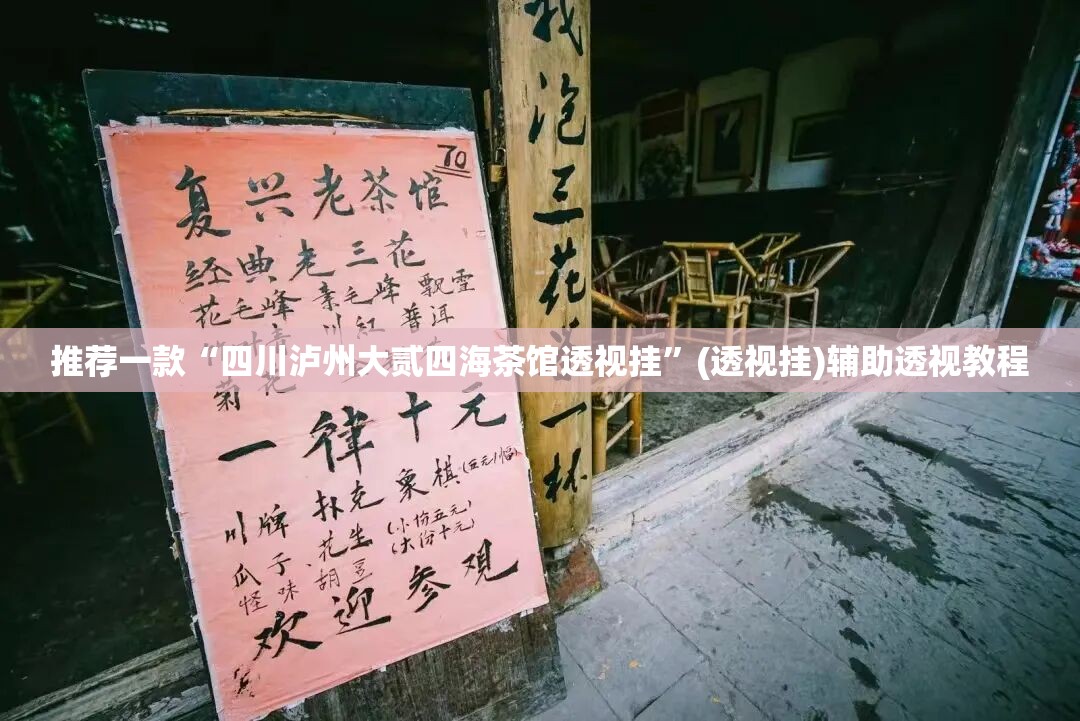 70
复兴老茶馆
经典老三花
花毛峰 素毛峰 飘雪
川红 普洱
菊花
一律十元
川牌 扑克 象棋(五元/幅)
瓜子、花生(小份五元)
怪味胡豆(大份十元)
欢迎参观
我泡三花
一杯
推荐一款“四川泸州大贰四海茶馆透视挂”(透视挂)辅助透视教程